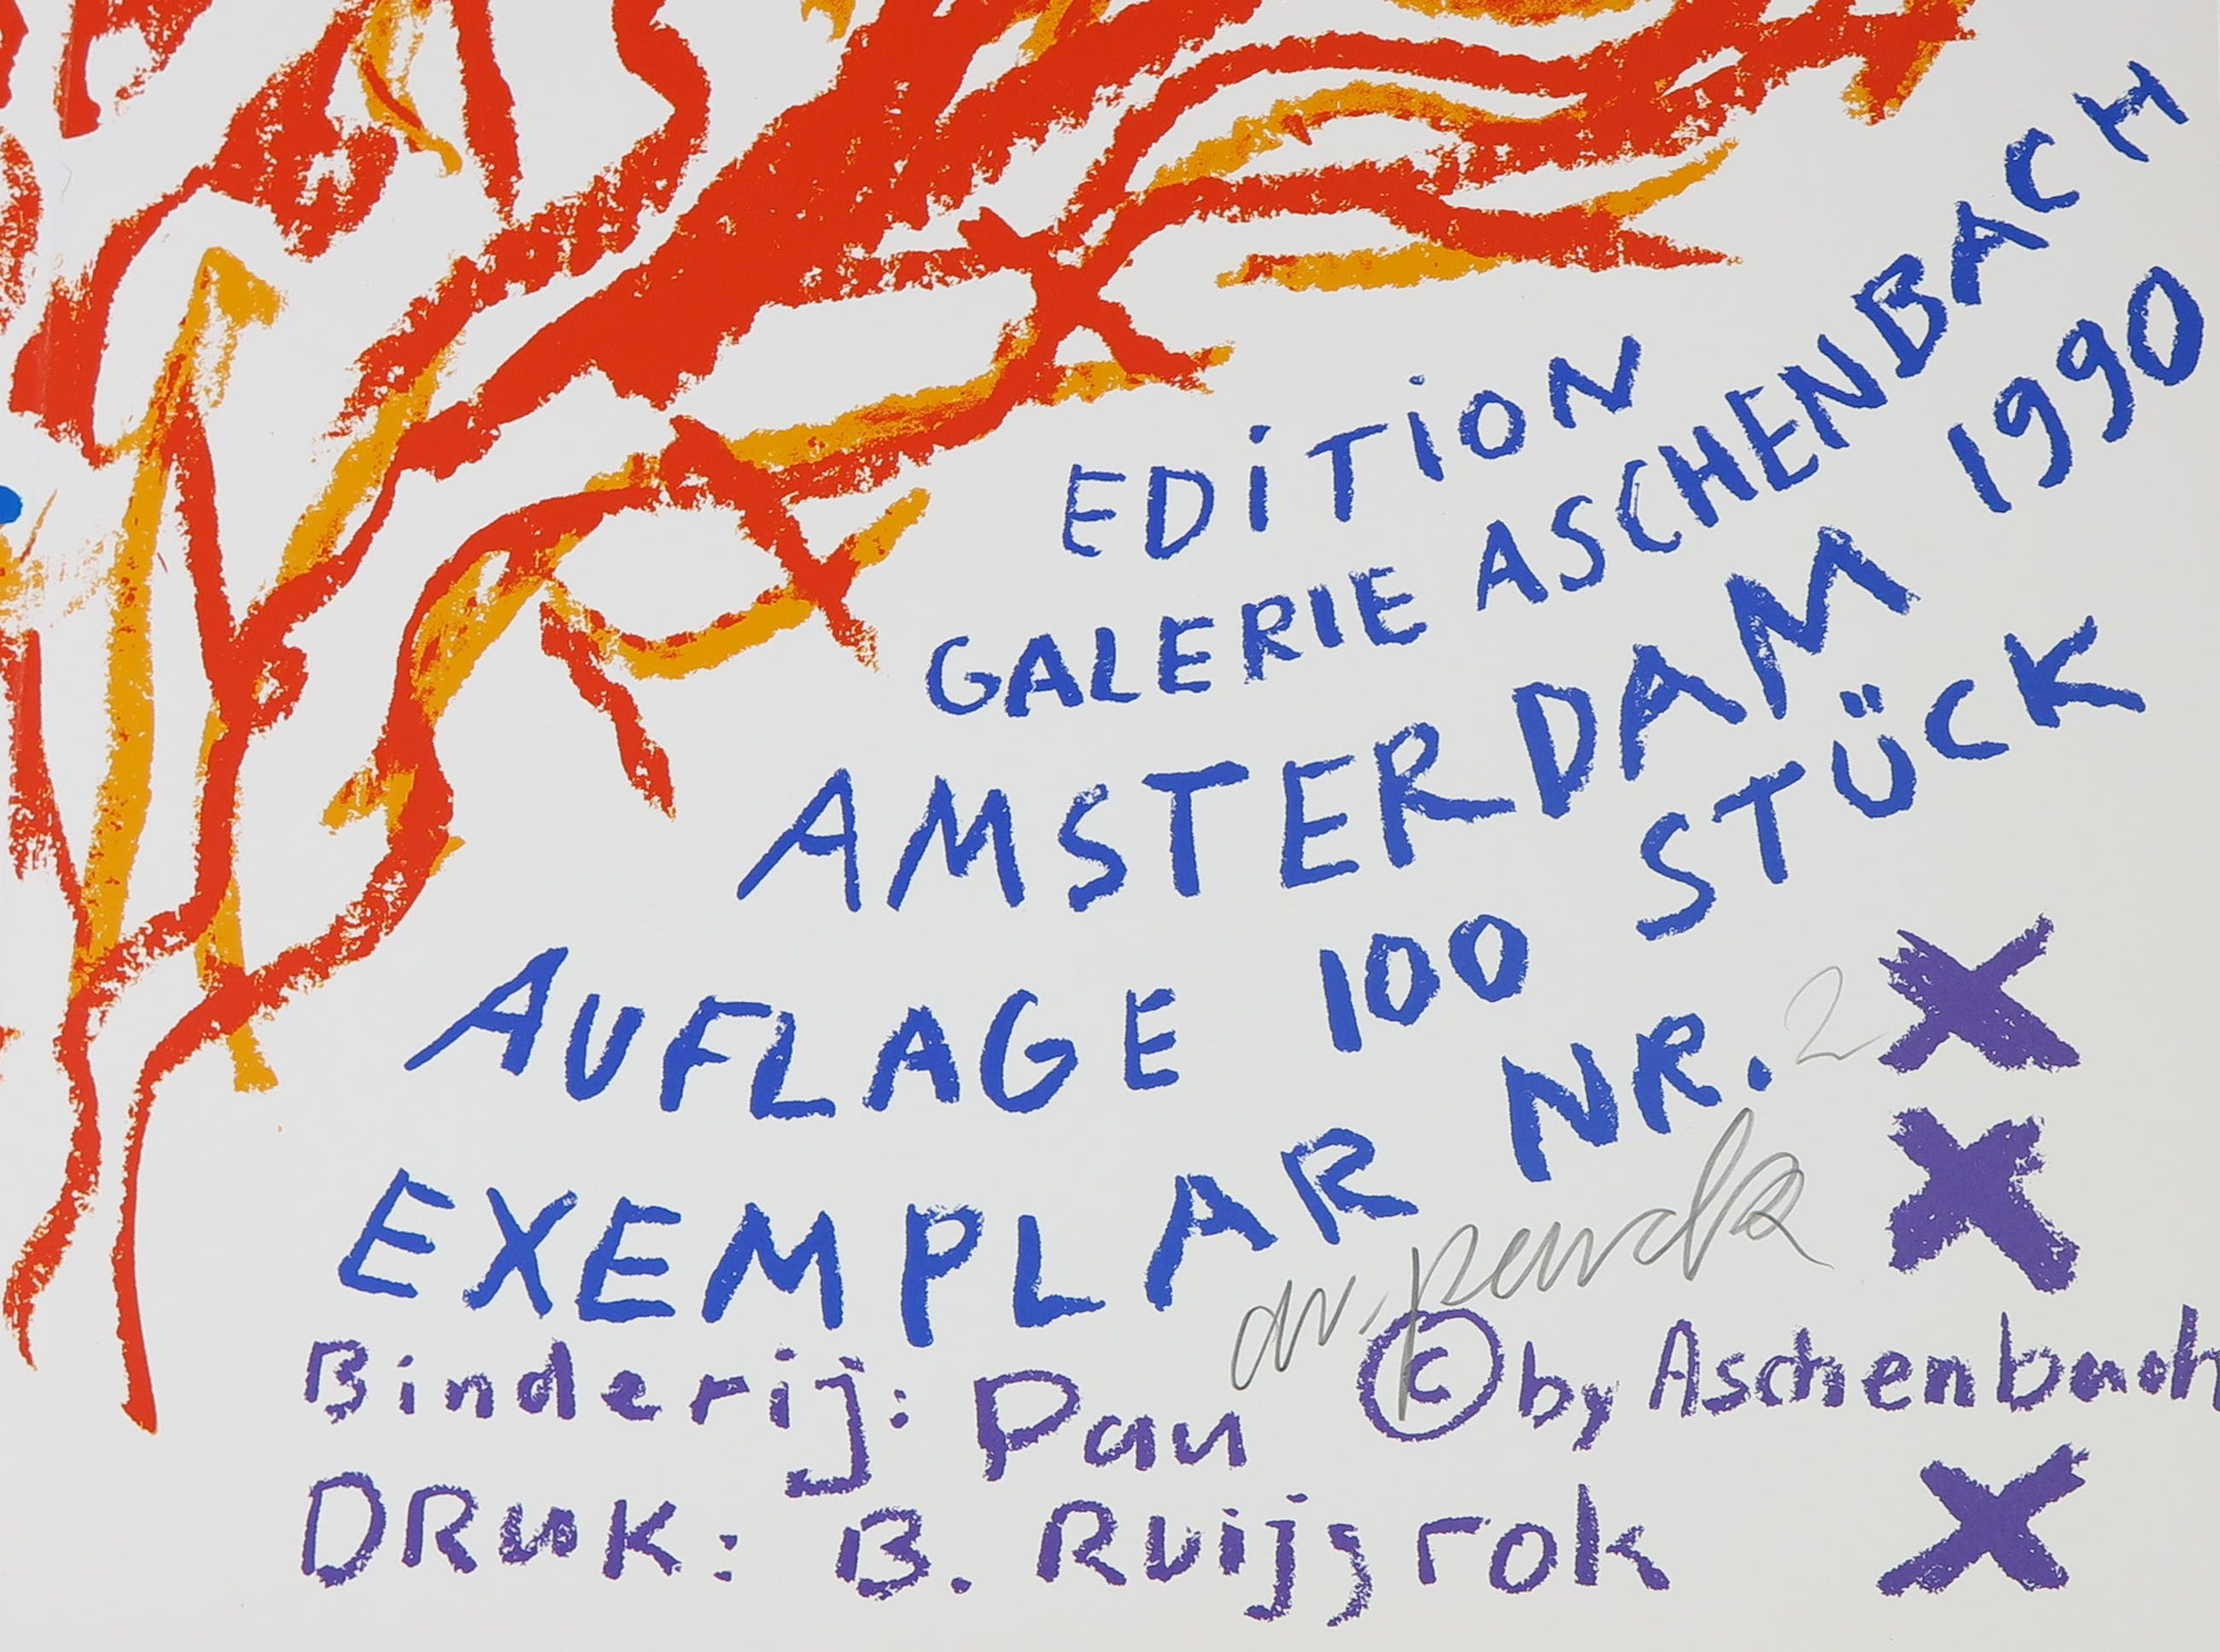 EDiTiON
GALERIE ASCHENBACH
AMSTERDAM 1990
AUFLAGE 100 STÜCK
EXEMPLAR NR. 2
ar. penck
Binderij: Pau
© by Aschenbach
DRUK: B. Ruijgrok